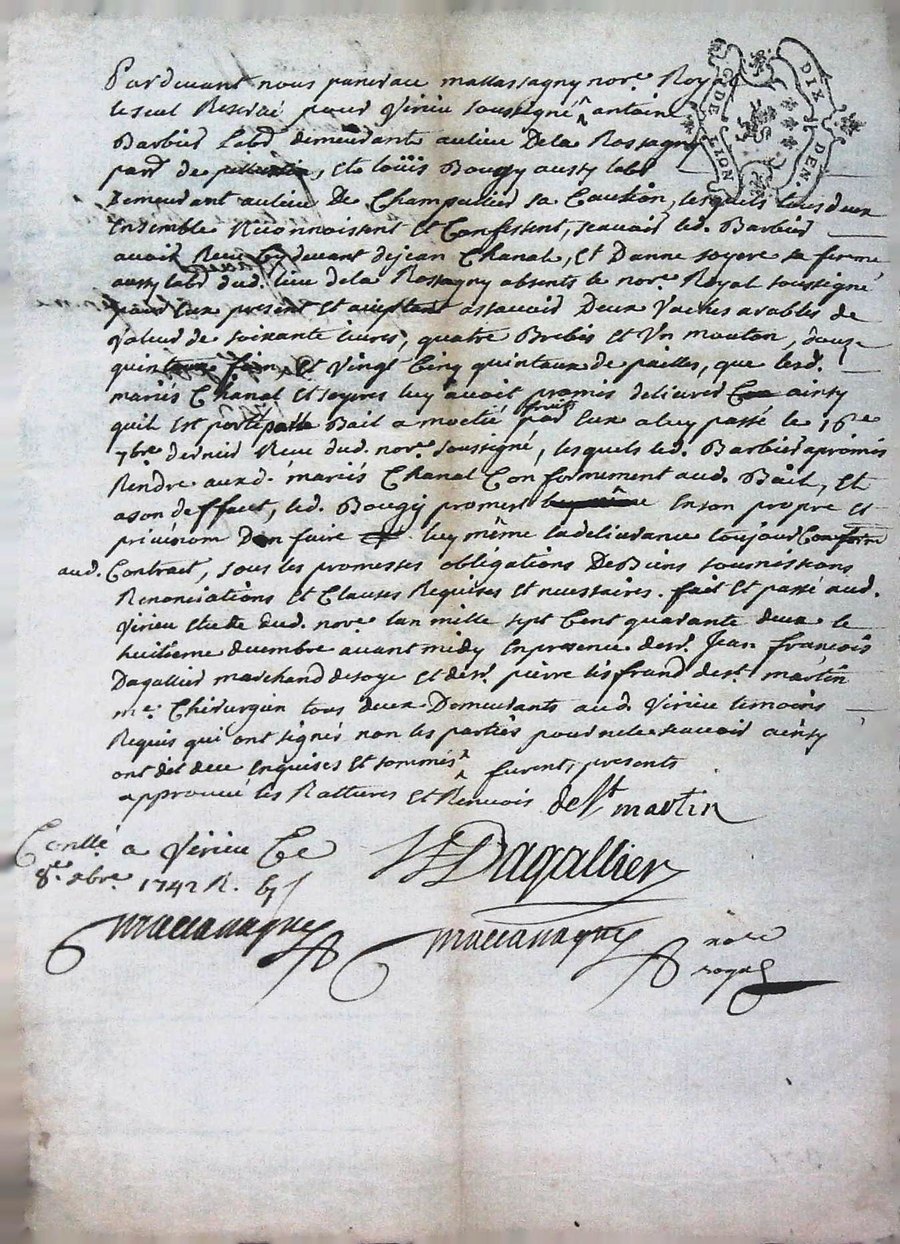 G. DE NOIT DIX DEN.
Pardevant nous pancrace massassagny nore. Royal
le seul Reservé pour Virieu soussigné ^ antoine
Barbier Labr demeurants au lieu De la Rossagny
parr de, et loüis Bougy aussy labr
Demeurant au lieu De Champallier sa Caution, lesquels tous deux
Ensemble Reconnoissent et Confessent, scavoir led. Barbier
avoir Receu Cy devant de jean Chanal, et Danne soyere sa femme
aussy labr dud. lieu de la Rossagny absents le nore. Royal soussigné
pour Eux present et aceptant assavoir Deux Vaches arables de
Valeur de soixante livres, quatre Brebis et Un mouton, douze
quintaux foin et Vingt Cinq quintaux de pailles, que lesd.
mariés Chanal et soyere luy avoit promis delivrer ainsy
quil est porté Bail a moctié fruits par Eux a luy passé le 16e
7bre dernier Receu dud. nore. soussigné, lesquels led. Barbier a promis
Rendre auxd. mariés Chanal Conformement aud. Bail, Et
a son deffaut, led. Bougy promet En son propre et
privé nom Den faire luy même la delivrance toujour Conforme
aud. Contract, sous les promesses obligations De Biens soumissions
Renonciations et Clauses Requises et necessaires. fait et passé aud.
Virieu Etude dud. nore lan mille sept Cent quarante deux le
huitième decembre avant midy En presence de sr. Jean françois
Dagallier marchand de soye et de sr. pierre lisfrand de st. martin
me. Chirurgien tous deux Demeurants aud. Virieu temoins
Requis qui ont signé non les parties pour ne le scavoir ainsy
ont dit de ce Enquises et sommés ^ furents presents
approuvé les Ratures et Renvois de St martin
Conllé a Virieu Ce
8e. xbre. 1742 R. 6 s
JF Dagallier
maccassagny
maccassagny nore
royal